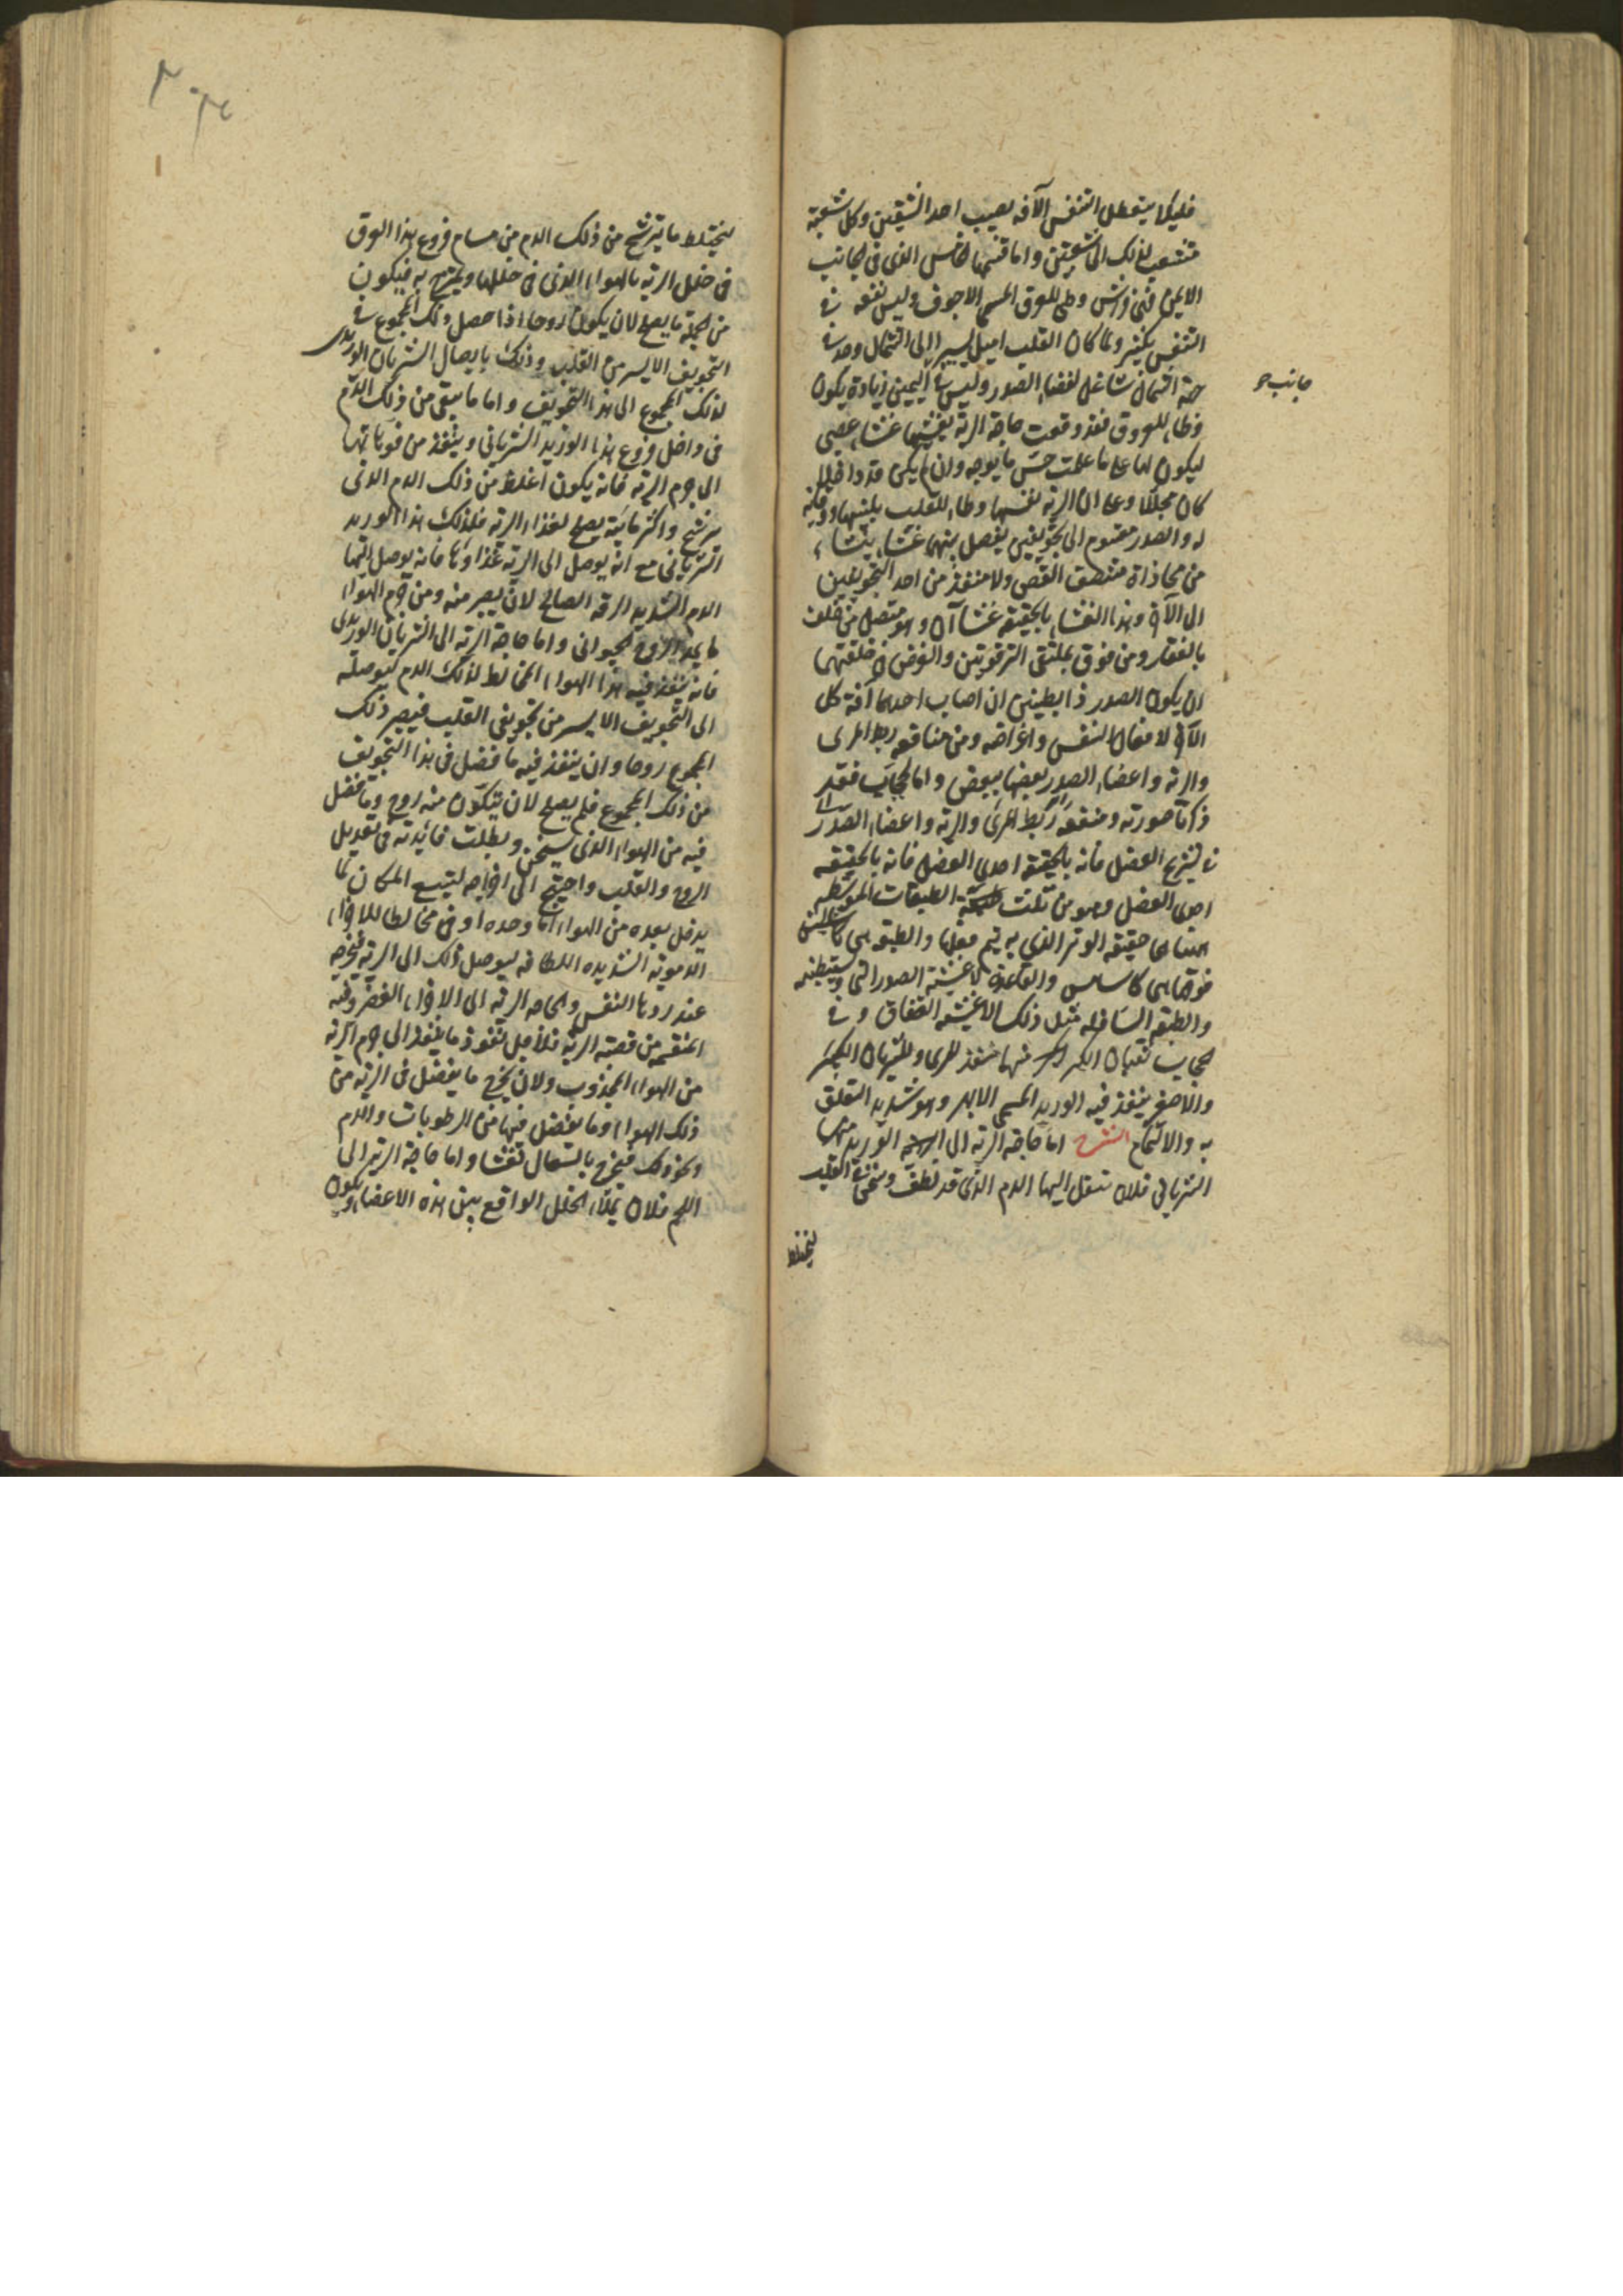 فليلا يتعطل التنفس لآفة يصيب احد الشقين وكل شعبة
تتشعب لذلك الى شعبتين واما قسمها الخامس الذي في الجانب
الايمن فهي فراش وطي للعرق المسمى الاجوف وليس نفعه في
التنفس بكثير ولما كان القلب اميل يسيرا الى الشمال وجد في
جانب
جهة الشمال شاغل لفضاء الصدر وليس في اليمين زيادة يكون
وطاء للعروق فقد وقعت حاجة الرية يغشيها غشاء عصبي
ليكون لها على ما علمت حس ما بوجه وان لم يكن مداخلا
كان مجللا وعلى ان الرية نفسها وطاء للقلب بلينها ووقاية
له والصدر مقسوم الى تجويفين يفصل بينهما غشاء ينشاء
من محاذاة منتصف القص ولا منفذ من احد التجويفين
الى الآخر وهذا الغشاء بالحقيقة غشاآن وهو متصل من خلف
بالفقار ومن فوق بملتقى الترقوتين والغرض في خلقتهما
ان يكون الصدر ذا بطينين ان اصاب احدهما آفة كمل
الآخر لافعال النفس واغراضه ومن منافعه ربط المرى
والرية واعضاء الصدر بعضها ببعض واما الحجاب فقد
ذكرنا صورته ومنفعته ربط المرى والرية واعضاء الصدر
في تشريح العضل فانه بالحقيقة احدى العضل فانه بالحقيقة
احدى العضل وهو من ثلث طبقات المتوسطة
منها هى حقيقة الوتر الذي به يتم فعلها والطبقة
فوقها هي كالاساس والقاعدة لاغشية الصدر التي تستبطنه
والطبقة السافلة مثل ذلك لاغشية الصفاق وفي
الحجاب ثقبان الكبير منهما منفذ للمرى وللشريان الكبير
والاصغر ينفذ فيه الوريد المسمى الابهر وهو شديد التعلق
به والالتحام الشرح اما حاجة الرية الى الوريد
الشرياني فلان ينقل اليها الدم الذي قد لطف وسخن في القلب
ليختلط
ليختلط ما يترشح من ذلك الدم من مسام فروع هذا العرق
في خلل الرية بالهواء الذي في خللها ويمتزج به فيكون
من الجملة ما يصلح لان يكون روحا اذا حصل ذلك المجموع في
التجويف الايسر من القلب وذلك بايصال الشريان الوريدى
لذلك المجموع الى هذا التجويف واما ما يبقى من ذلك الدم
في داخل فروع هذا الوريد الشرياني وينفذ من فوهاتها
الى جرم الرية فانه يكون اغلظ من ذلك الدم الذي
يترشح واكثر مائية يصلح لغذاء الرية فلذلك هذا الوريد
الشرياني مع انه يوصل الى الرية غذاؤها فانه يوصل اليها
الدم الشديد الرقة الصالح لان يصير منه ومن جرم الهواء
ما يمد الروح الحيواني واما حاجة الرية الى الشريان الوريدى
فانه ينفذ فيه هذا الهواء المخالط لذلك الدم ليوصله
الى التجويف الايسر من تجويفي القلب فيصير ذلك
المجموع روحا وان ينفذ فيه ما فضل في هذا التجويف
من ذلك المجموع فلم يصلح لان يتكون منه روح وما فضل
فيه من الهواء الذي سخن وبطلت فائدته في تعديل
الروح والقلب واحتيج الى اخراجه ليتسع المكان لما
يدخل بعده من الهواء اما وحده او في مخالطا للاجزاء
الدموية الشديدة اللطافه ليوصل ذلك الى الرية فيخرجه
عند ردها النفس والحاجة الرية الى الاجزاء الغضروفية
المنقسمة من قصبة الرية فلاجل نفوذ ما ينفذ الى جرم الرية
من الهواء المجذوب ولان يخرج ما يفضل في الرية من
ذلك الهواء وما يفضل فيها من الرطوبات والدم
ونحو ذلك فيخرج بالسعال نفثا واما حاجة الرية الى
اللحم فلان يملاء الخلل الواقع بين هذه الاعضاء ويكون